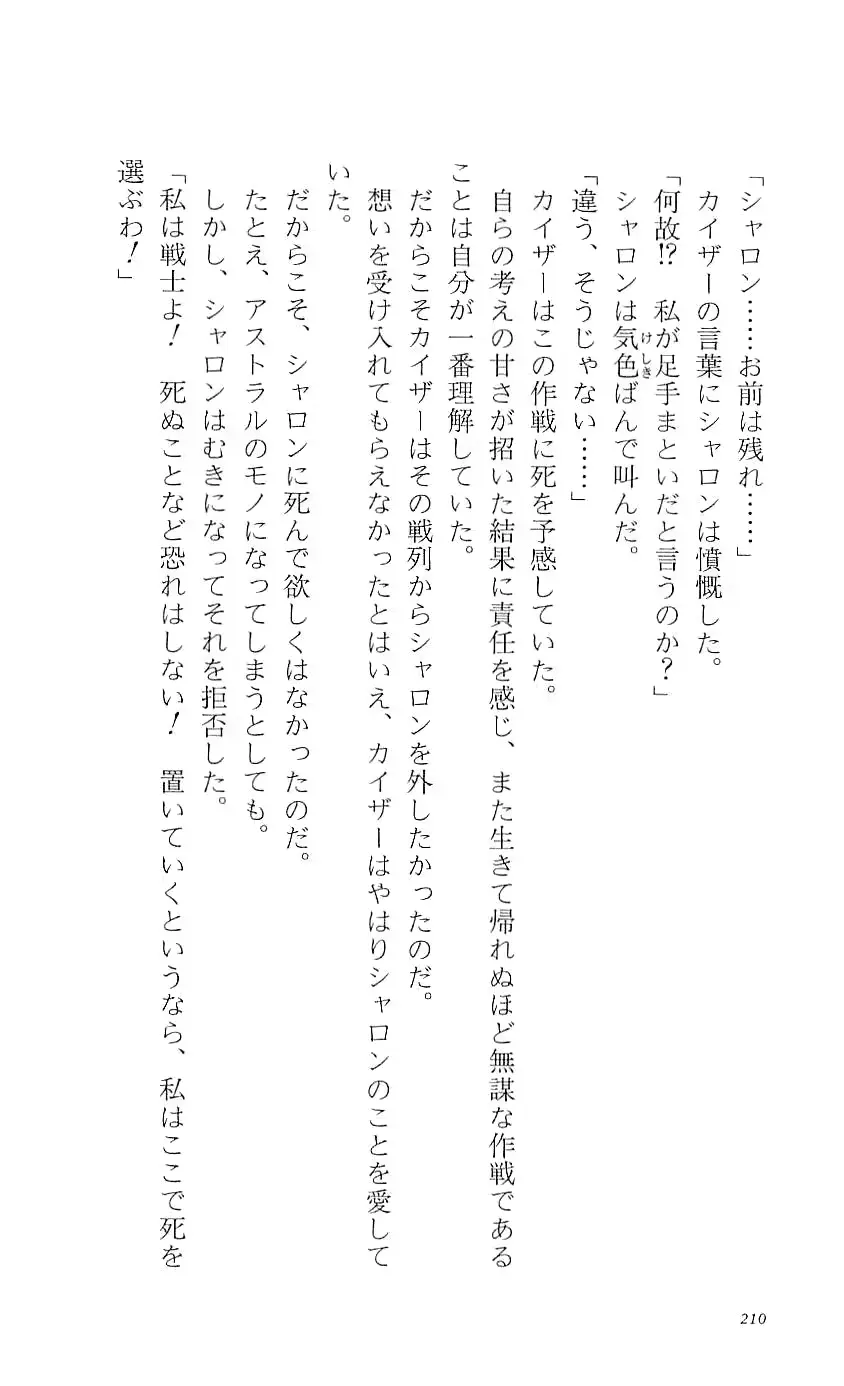 「シャロン……お前は残れ……」
　カイザーの言葉にシャロンは憤慨した。
「何故!?　私が足手まといだと言うのか？」
　シャロンは気色ばんで叫んだ。
けしき
「違う、そうじゃない……」
　カイザーはこの作戦に死を予感していた。
　自らの考えの甘さが招いた結果に責任を感じ、また生きて帰れぬほど無謀な作戦である
ことは自分が一番理解していた。
　だからこそカイザーはその戦列からシャロンを外したかったのだ。
　想いを受け入れてもらえなかったとはいえ、カイザーはやはりシャロンのことを愛して
いた。
　だからこそ、シャロンに死んで欲しくはなかったのだ。
　たとえ、アストラルのモノになってしまうとしても。
　しかし、シャロンはむきになってそれを拒否した。
「私は戦士よ！　死ぬことなど恐れはしない！　置いていくというなら、私はここで死を
選ぶわ！」
210